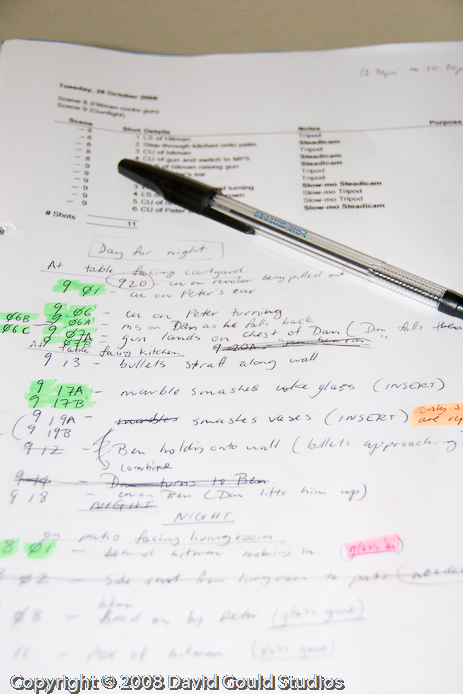 Tuesday, 28 October 2008
Scene 8 (Hitman cocks gun)
Scene 9 (Gunfight)
Scene Shot Details Notes Purpose
8 1 LS of Hitman Tripod
8 2 Step through kitchen onto patio Steadicam
8 3 CU of hitman Tripod
8 4 CU of gun and switch to MP5 Steadicam
of hitman raising gun Tripod
9 ear Tripod
9 turning Slow-mo Steadicam
9 4 LS Slow-mo Tripod
9 5 Slow-mo Tripod
9 6 CU of Peter Slow-mo Steadicam
# Shots 11
Day for night
At table facing courtyard
920 - cu on revolver being pulled out
9 01 - cu on Peter's ear.
9 06 - cu on Peter turning
06B 9 06A - ms on Dam as he falls back
06C 9 07A - gun lands on chest of Dam (Dam falls then
9 07B
At table facing kitchen
9 13 - bullets straff along wall
9 17A - marble smashes coke glass (INSERT)
9 17B
9 19A - marble smashes vases (INSERT) only s
9 19B are re
9 12 - Ben holding onto wall (bullets approaching
combine
9 14 - Dam turns to Ben
9 18 - cu on Ben (Dam lifts him up)
NIGHT
NIGHT
on patio facing livingroom
8 01 - behind hitman walking in
02 - side shot from livingroom to patio (needed
08 - fired on by Peter (glass gone).
11 - POV of hitman. (glass gone)
Copyright © 2008 David Gould Studios